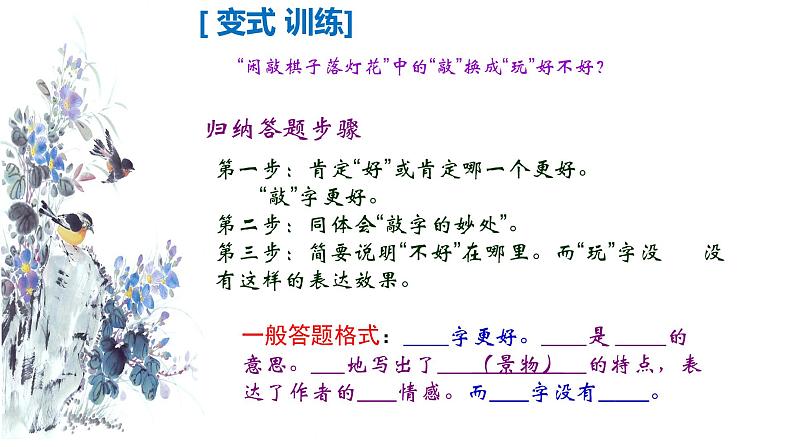 [ 变式 训练]
“闲敲棋子落灯花”中的“敲”换成“玩”好不好？
归纳答题步骤
第一步：肯定“好”或肯定哪一个更好。
“敲”字更好。
第二步：同体会“敲字的妙处”。
第三步：简要说明“不好”在哪里。而“玩”字没 没
有这样的表达效果。
一般答题格式：____字更好。____是_____的
意思。___地写出了___（景物）___的特点，表
达了作者的___情感。而___字没有____。